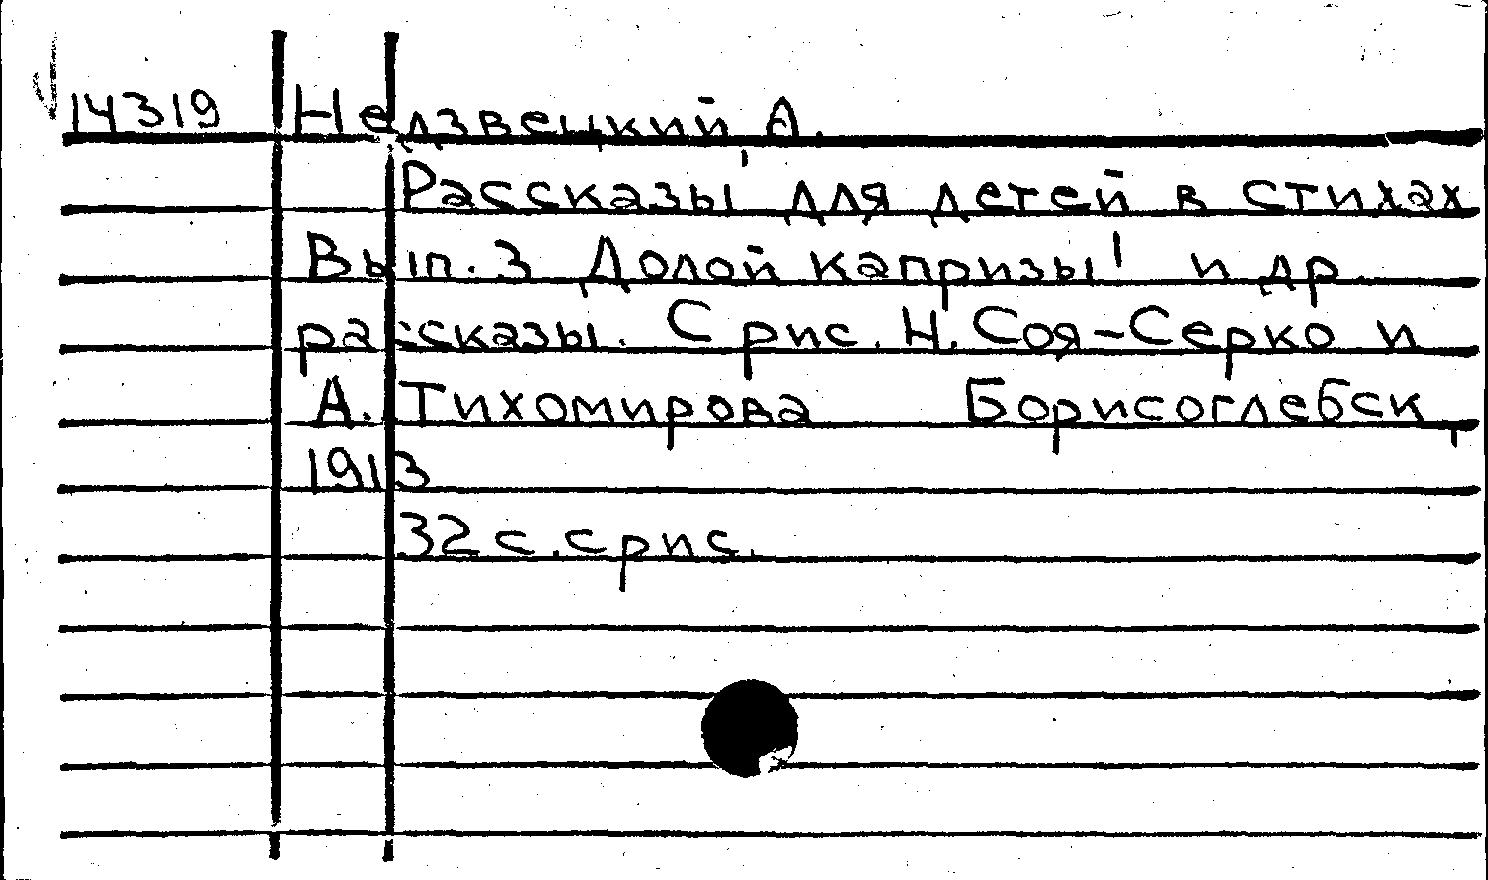 14319 Недзвецкий, А.
Рассказы для детей в стихах
Вып. 3 Долой капризы! и др.
рассказы. С рис. Н. Соя-Серко и
А. Тихомирова Борисоглебск,
1913
32 с. с рис.